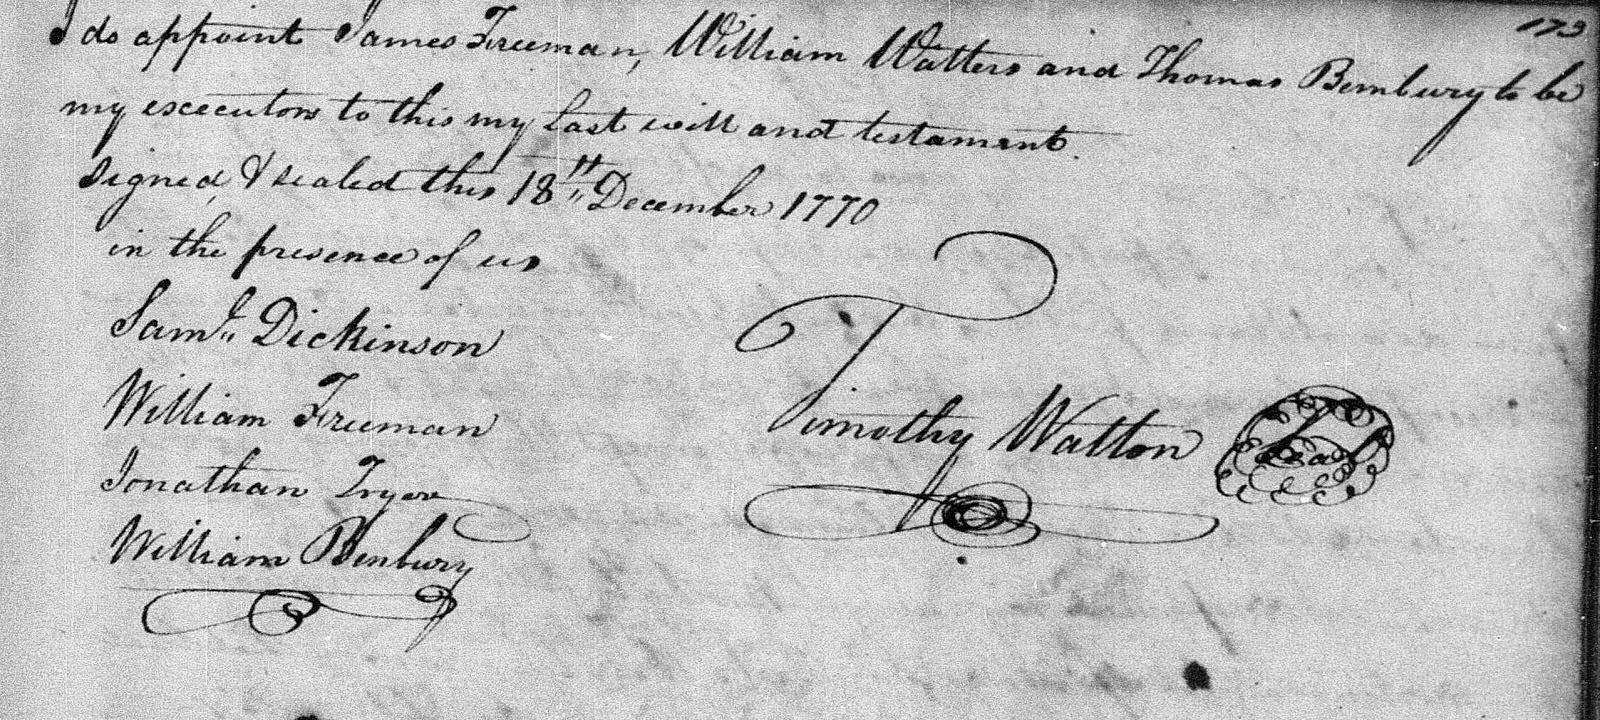 173
I do appoint James Freeman, William Watters and Thomas Bembury to be
my executors to this my last will and testament.
Signed, & sealed this 18th December 1770
in the presence of us
Saml. Dickinson
William Freeman
Jonathan Tryer
William Benbury
Timothy Watton Seal